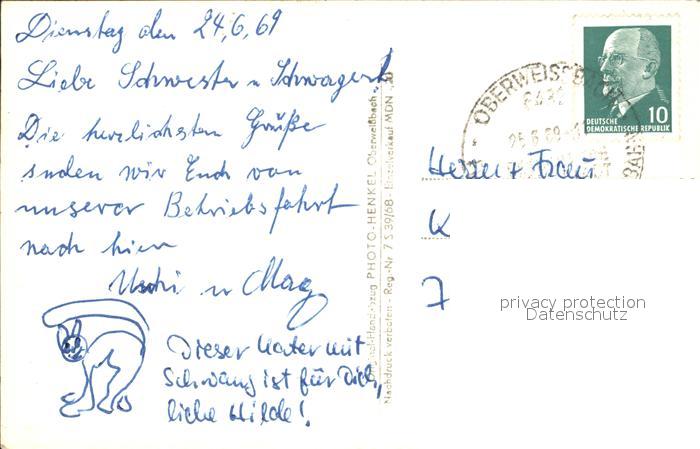 Dienstag den 24.6.69
Liebe Schwester u Schwager!
Die herzlichsten Grüße
senden wir Euch von
unserer Betriebsfahrt
nach hier
Uschi u
Dieser Kater mit
Schwang ist für Dich,
liebe Hilde!
PHOTO-HENKEL Oberweißbach
Nachdruck verboten - Reg.-Nr. 7 S 39/68 - Einzelverkauf MDN
OBERWEISSBACH
10
DEUTSCHE
DEMOKRATISCHE REPUBLIK
Herrn + Frau
K
7
privacy protection
Datenschutz